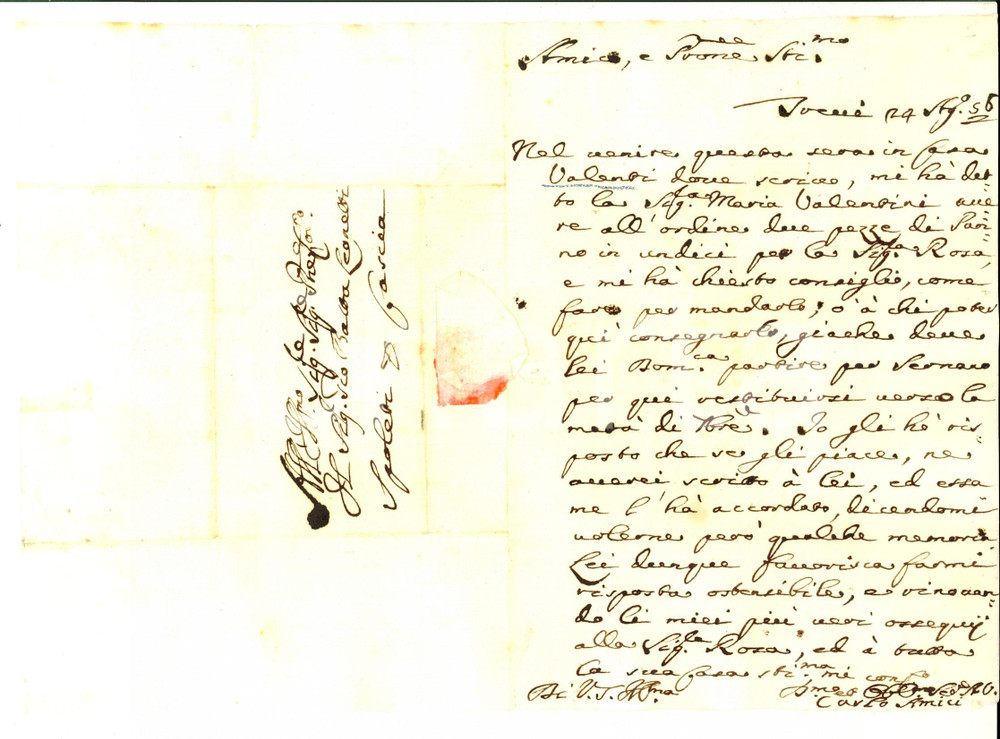 Amico, e Prone Sti.mo
Trevi 24 Ag.o 56
Nel venire questa sera in Casa
Valenti dove scrivo, mi hà det=
to la Sig.ra Maria Valentini ave=
re all'ordine due pezze di Pan=
no in undici per la Sig.ra Rosa,
e mi hà chiesto consiglio, come
fare per mandarlo, ò à chi poter
quì consegnarlo, giache deve
lei Dom.ca partire per
per qui restituirsi verso la
metà di 7bre. Io gli hò ris=
posto che se gli piace, ne
averei scritto à lei, ed essa
me l'hà accordato, dicendomi
volerne però qualche memoria
Lei dunque favorisca farmi
risposta ostensibile, e rinovan=
do li miei più veri ossequij
alla Sig.ra Rosa, ed à tutta
la sua Casa sti.ma mi conf.o
Di V.S. Ill.ma
Carlo Amici
All' Ill.mo Sig.re Sig.re Pne Col.mo
Il Sig. Gio Batta Leonetti
Spoleti p Cascia